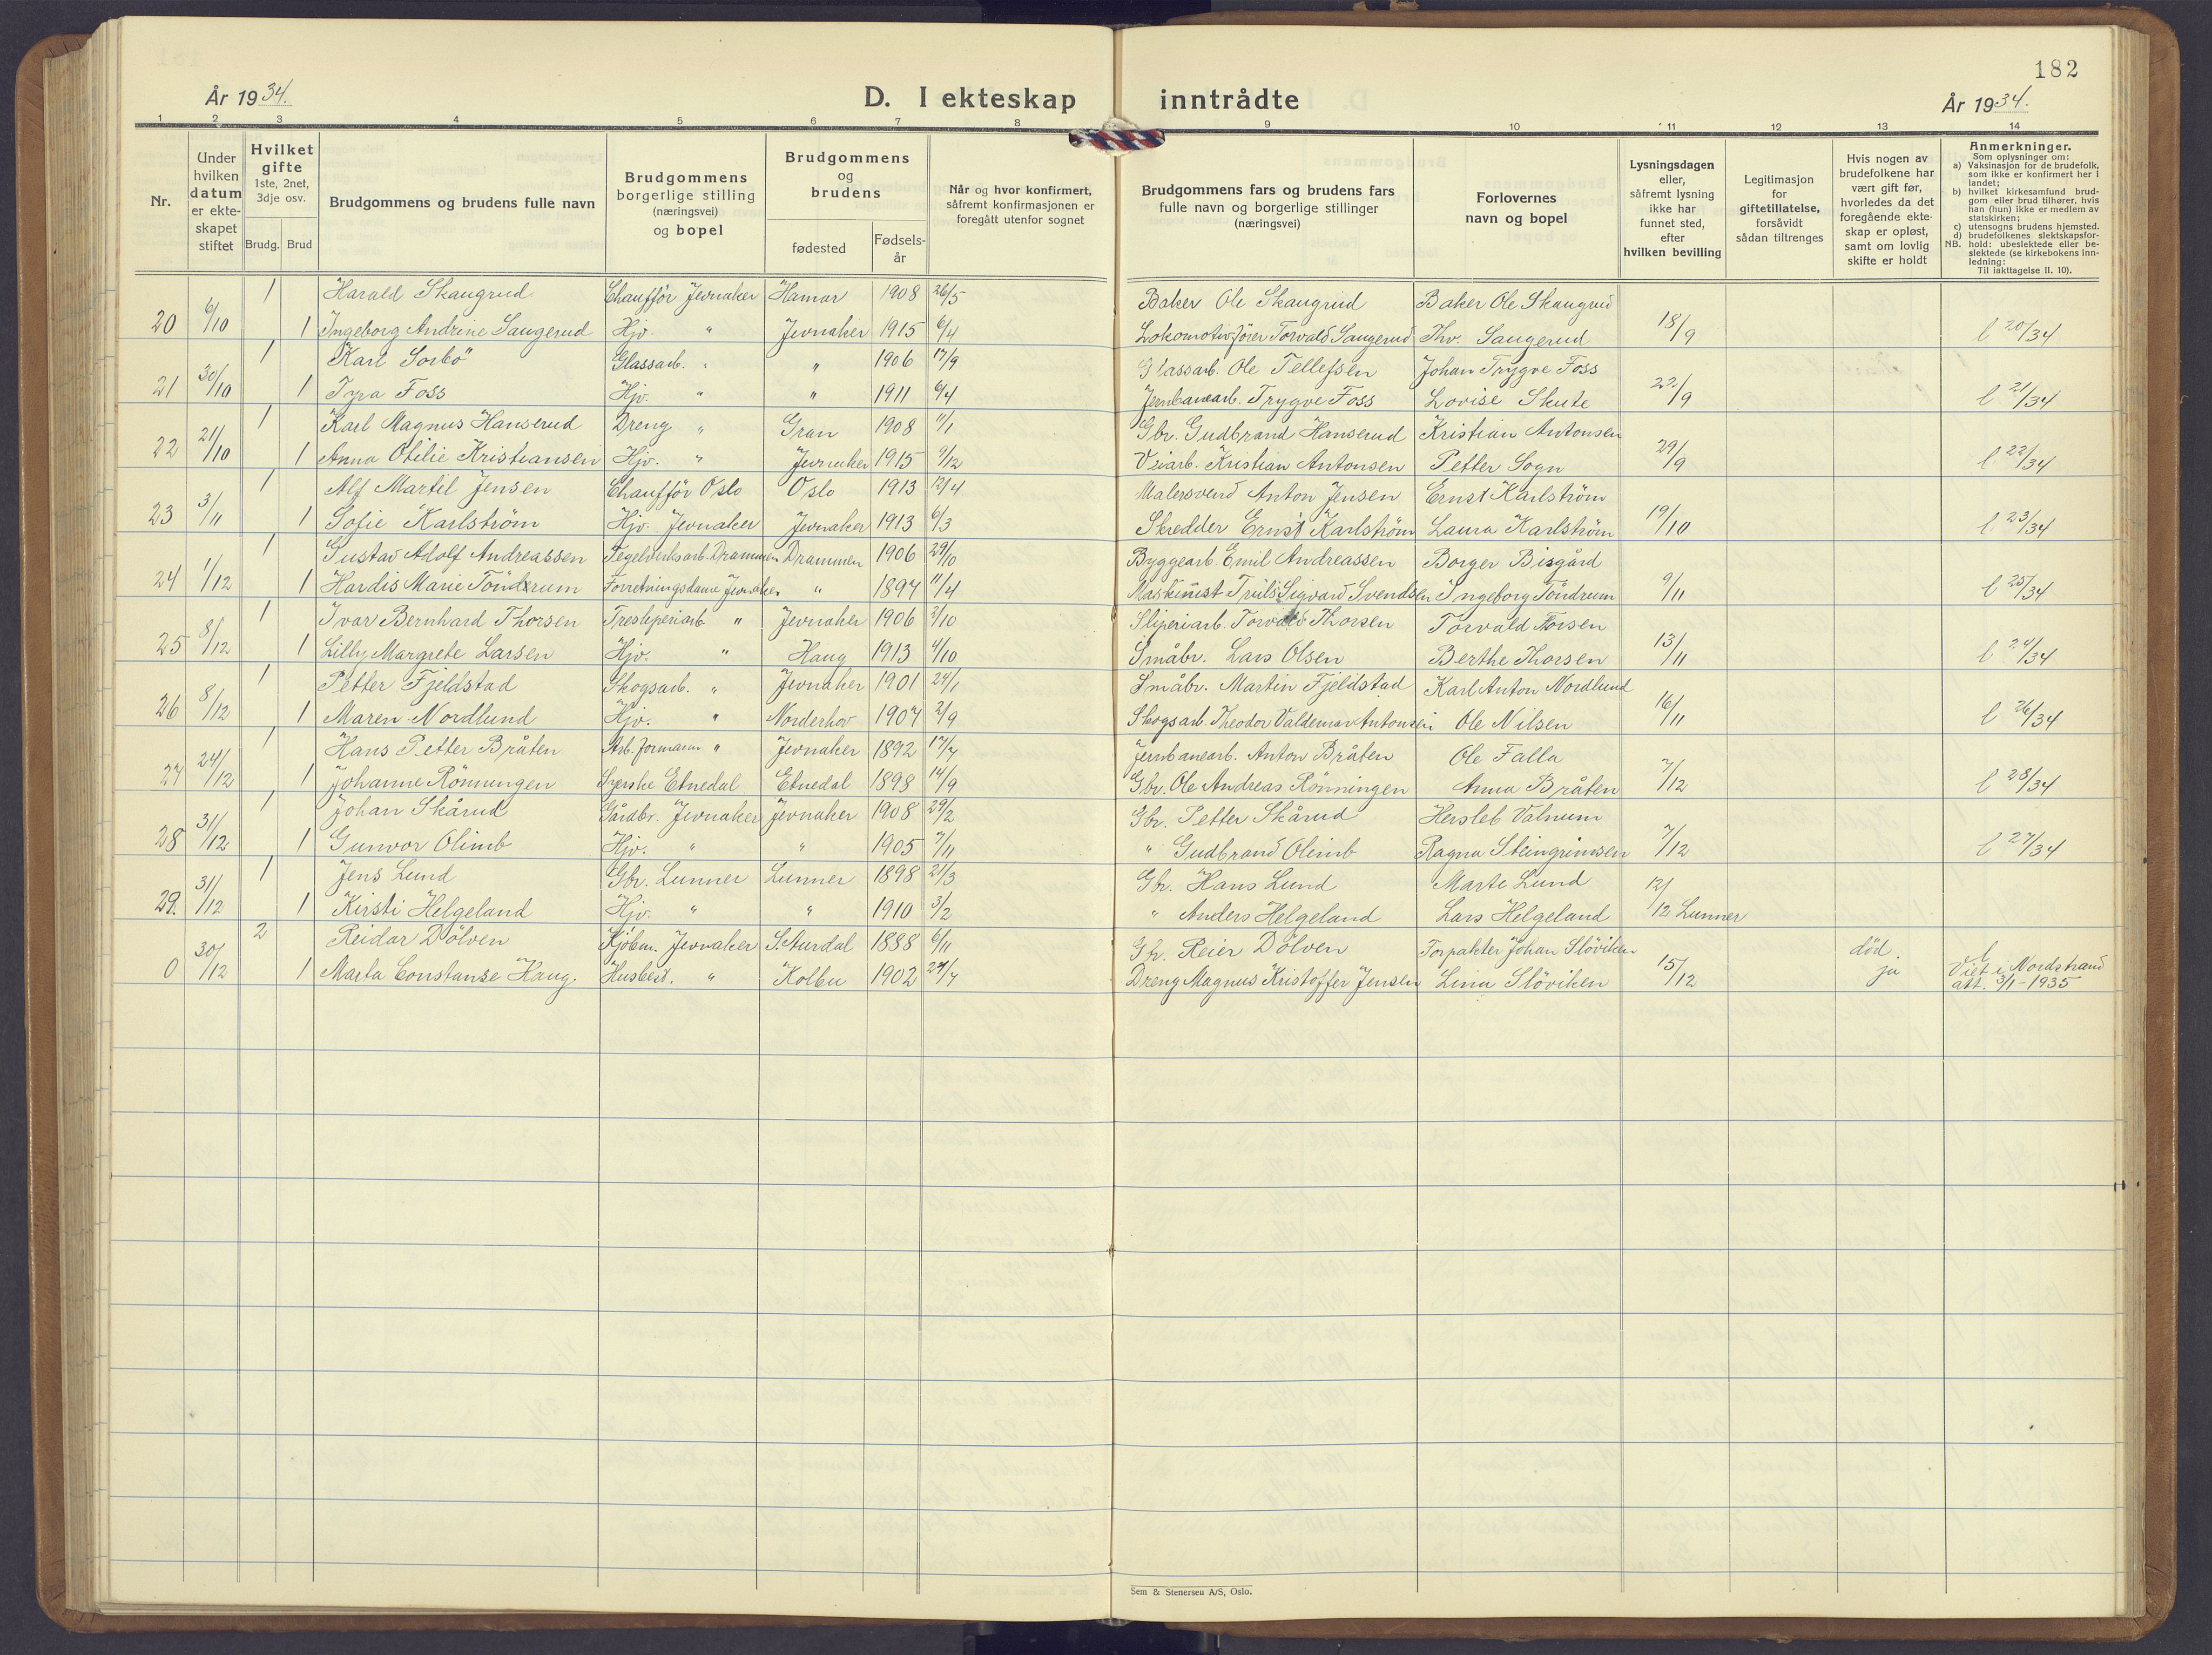 182
År 1934.
D. I ekteskap inntrådte
År 1934.
1 2 3 4 5 6 7 8 9 10 11 12 13 14
Nr.
Under hvilken datum er ekteskapet stiftet
Hvilket gifte 1ste, 2net, 3dje osv.
Brudg. Brud
Brudgommens og brudens fulle navn
Brudgommens borgerlige stilling (næringsvei) og bopel
Brudgommens og brudens
fødested
Fødselsår
Når og hvor konfirmert, såfremt konfirmasjonen er foregått utenfor sognet
Brudgommens fars og brudens fars fulle navn og borgerlige stillinger (næringsvei)
Forlovernes navn og bopel
Lysningsdagen eller, såfremt lysning ikke har funnet sted, efter hvilken bevilling
Legitimasjon for giftetillatelse, forsåvidt sådan tiltrenges
Hvis nogen av brudefolkene har vært gift før, hvorledes da det foregående ekteskap er opløst, samt om lovlig skifte er holdt
Anmerkninger.
Som oplysninger om:
a) Vaksinasjon for de brudefolk, som ikke er konfirmert her i landet;
b) hvilket kirkesamfund brudgom eller brud tilhører, hvis han (hun) ikke er medlem av statskirken;
c) utensogns brudens hjemsted.
d) brudefolkenes slektskapsforhold: ubeslektede eller beslektede (se kirkebokens innledning:
NB. Til iakttagelse II. 10).
1 Harald Skaugrud Chauffør Jevnaker Hamar 1908 26/5 Baker Ole Skaugrud Baker Ole Skaugrud
20 6/10 1 Ingeborg Andrine Saugerud Hjv. " Jevnaker 1915 6/4 Lokomotivfører Torvald Saugerud Thv. Saugerud 18/9 l 20/34
1 Karl Sorbö Glassarb. " " 1906 17/9 Glassarb. Ole Tellefsen Johan Trygve Foss
21 30/10 1 Tyra Foss Hjv. " " 1911 6/4 Jernbanearb. Trygve Foss Lovise Skute 22/9 l 21/34
1 Karl Magnus Hanserud Dreng " Gran 1908 11/1 Gbr. Gudbrand Hanserud Kristian Antonsen
22 21/10 1 Anna Otilie Kristiansen Hjv. " Jevnaker 1915 9/12 Veiarb. Kristian Antonsen Petter Sogn 29/9 l 22/34
1 Alf Martil Jensen Chauffør Oslo Oslo 1913 12/4 Malersvend Anton Jensen Ernst Karlström
23 3/11 1 Sofie Karlström Hjv. Jevnaker Jevnaker 1913 6/3 Skredder Ernst Karlström Laura Karlström 19/10 l 23/34
1 Gustav Adolf Andreassen Tegelverksarb. Drammen Drammen 1906 29/10 Byggearb. Emil Andreassen Borger Bisgård
24 1/12 1 Hardis Marie Töndrum Forretningsdame Jevnaker " 1897 11/4 Maskinist Truls Sigvard Svendsen Ingeborg Töndrum 9/11 l 25/34
1 Ivar Bernhard Thorsen Tresliperiarb. " Jevnaker 1906 2/10 Sliperiarb. Torvald Thorsen Torvald Torsen
25 8/12 1 Lilly Margrete Larsen Hjv. " Haug 1913 4/10 Småbr. Lars Olsen Berthe Thorsen 13/11 l 24/34
1 Petter Fjeldstad Skogsarb. " Jevnaker 1901 24/1 Småbr. Martin Fjeldstad Karl Anton Nordlund
26 8/12 1 Maren Nordlund Hjv. " Norderhov 1907 2/9 Skogsarb. Theodor Valdemar Antonsen Ole Nilsen 16/11 l 26/34
1 Hans Petter Bråten Arb. formann " Jevnaker 1892 17/7 Jernbanearb. Anton Bråten Ole Falla
27 24/12 1 Johanne Rönningen Syerske Etnedal Etnedal 1898 14/9 Gbr. Ole Andreas Rönningen Anna Bråten 7/12 l 28/34
1 Johan Skårud Gårdbr. Jevnaker Jevnaker 1908 29/2 Gbr. Petter Skårud Hersleb Valnum
28 31/12 1 Gunvor Olimb Hjv. " " 1905 7/11 " Gudbrand Olimb Ragna Steingrimsen 7/12 l 27/34
1 Jens Lund Gbr. Lunner Lunner 1898 21/3 Gbr. Hans Lund Marte Lund
29. 31/12 1 Kirsti Helgeland Hjv. " " 1910 3/2 " Anders Helgeland Lars Helgeland 12/12 Lunner
2 Reidar Dölven Kjöbm. Jevnaker S. Aurdal 1888 6/11 Gbr. Reier Dölven Forpakter Johan Slöviken död. l
0 30/12 1 Marta Constanse Haug. Husbest. " Kolbu 1902 27/7 Dreng Magnus Kristoffer Jensen Lina Slöviken 15/12 ja Viet i Nordstrand
att. 3/1-1935
Sem & Stenersen A/S, Oslo.